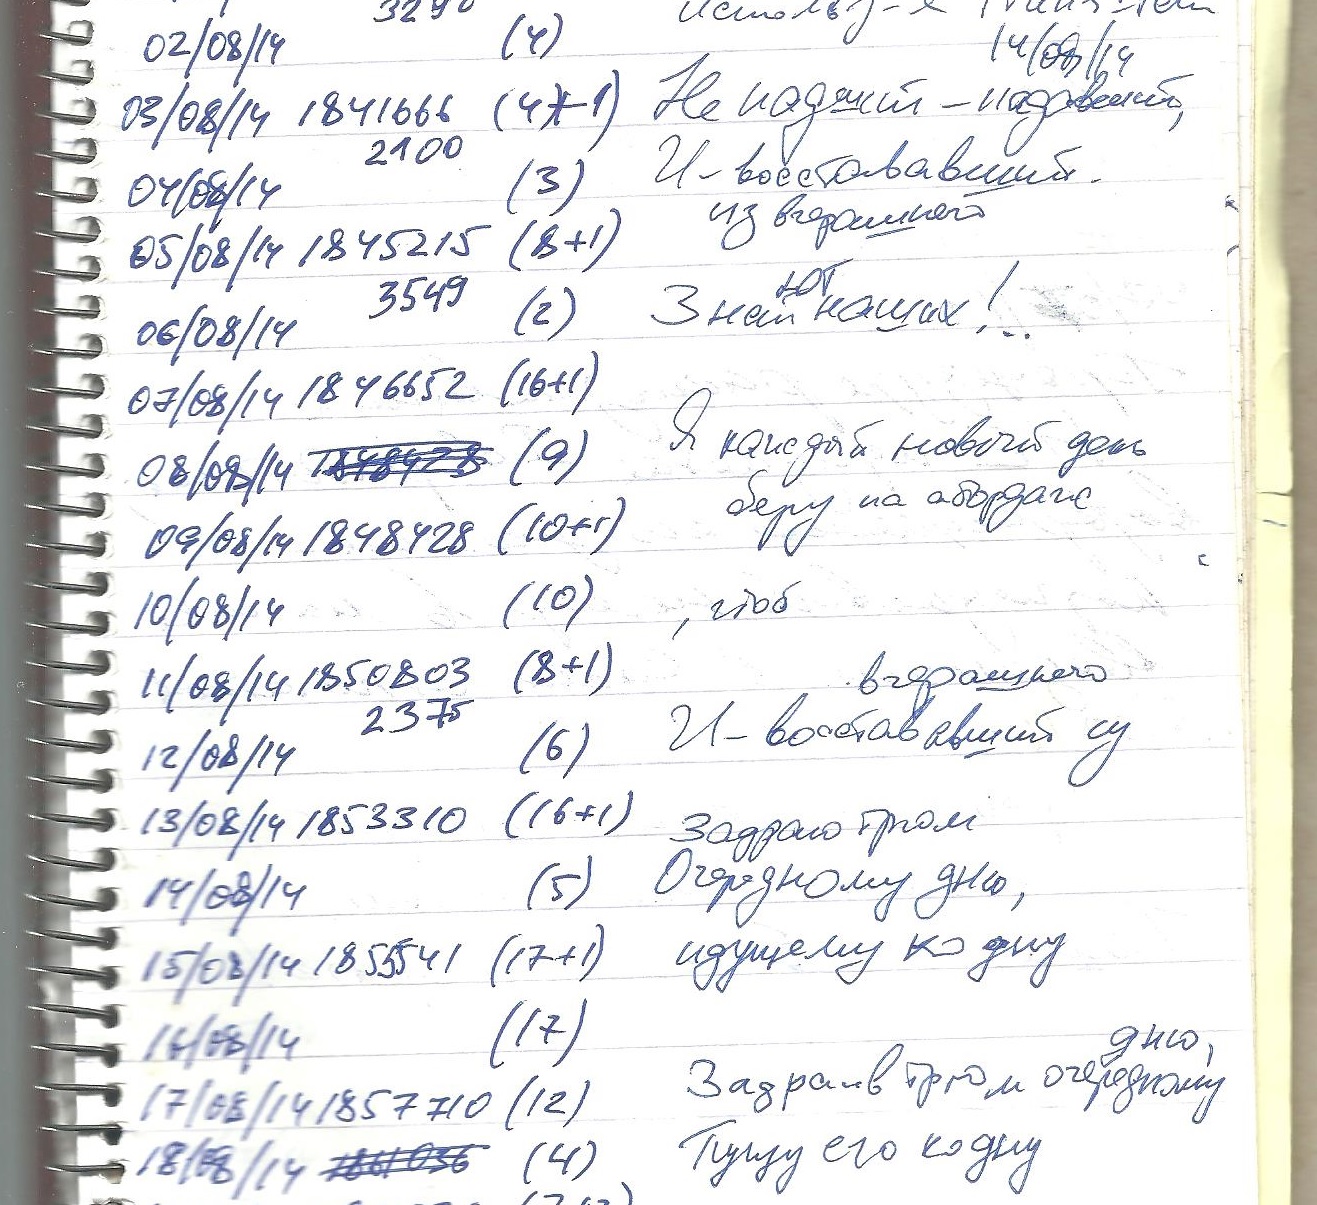 3290
02/08/14 (4) 14/08/14
03/08/14 1841666 (4+1) Не наджит – надавешит,
2100
04/08/14 (3) И – восстававший
из вчерашнего
05/08/14 1845215 (8+1)
3549 ют
06/08/14 (2) Знай наших!..
07/08/14 1846652 (16+1)
08/08/14 1848428 (9) Я каждый новый день
беру на абордаж
09/08/14 1848428 (10+1)
10/08/14 (10) , чтоб
11/08/14 1850803 (8+1) вчерашнего
2375
12/08/14 (6) И – восстававший су
13/08/14 1853310 (16+1) Задраю трюм
14/08/14 (5) Очередному дню,
15/08/14 1855541 (17+1) идущему ко дну
16/08/14 (17) дню,
17/08/14 1857710 (12) Задраив трюм очередному
18/08/14 1861036 (4) Пущу его ко дну